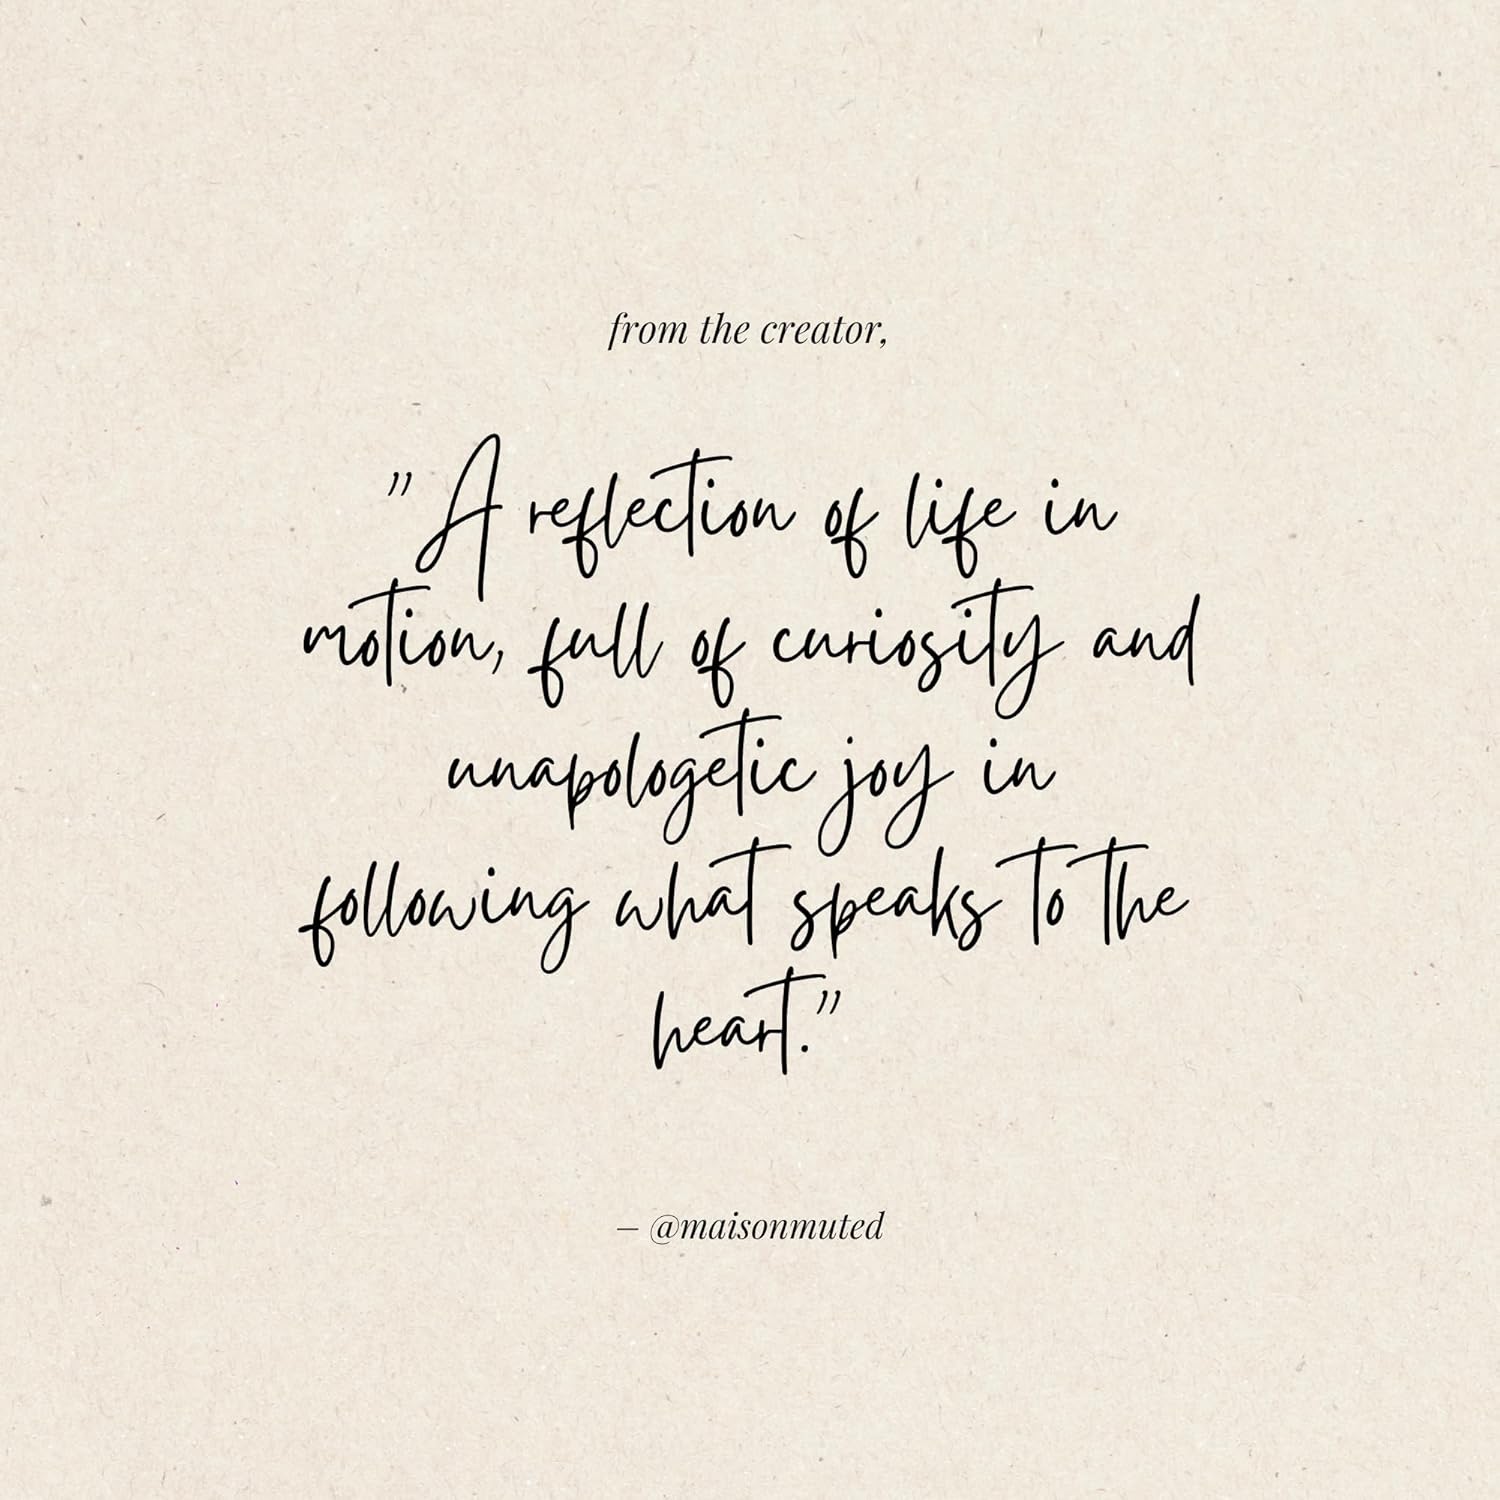 from the creator,
"A reflection of life in
motion, full of curiosity and
unapologetic joy in
following what speaks to the
heart."
– @maisonmuted